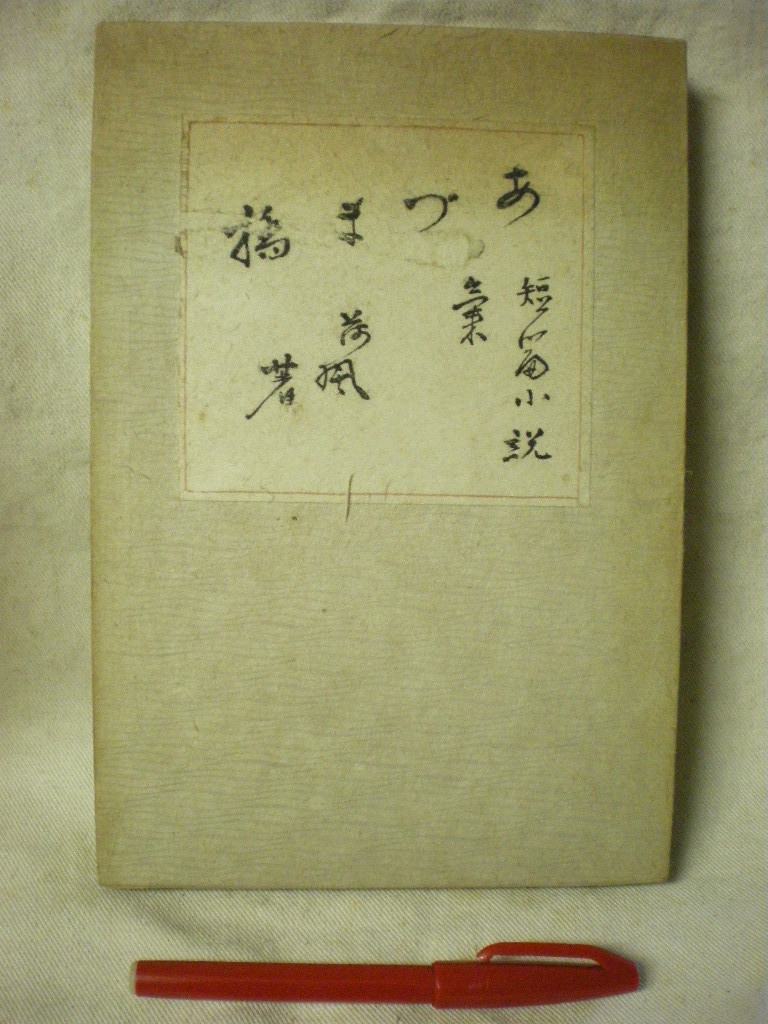 あ 短篇小説
づ
ま 荷風
橋 著